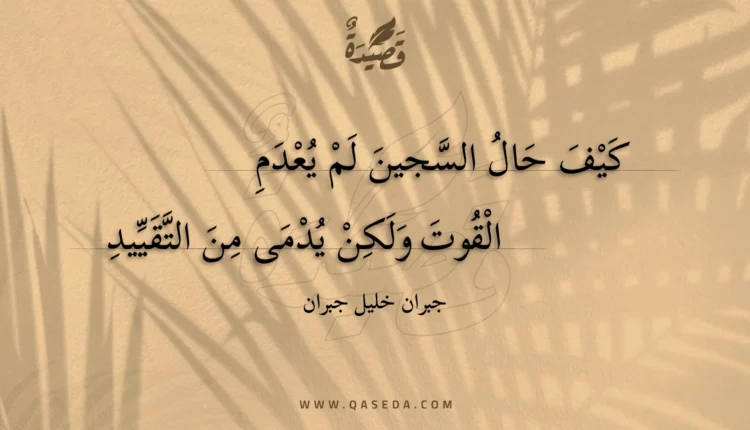 قَصِيدَةٌ
كَيْفَ حَالُ السَّجينَ لَمْ يُعْدَمِ
الْقُوتَ وَلَكِنْ يُدْمَى مِنَ التَّقَيِّيدِ
جبران خليل جبران
WWW.QASEDA.COM